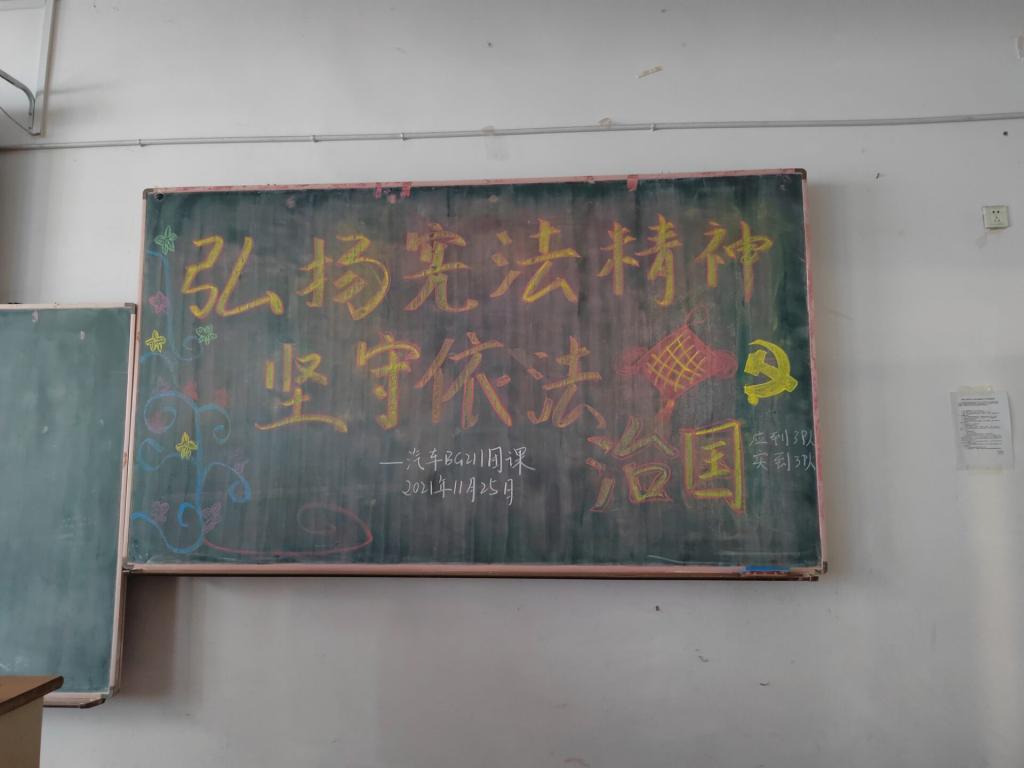 弘扬宪法精神
坚守依法
治国
—汽车BG211团课
2021年11月25日
应到3队
实到3队